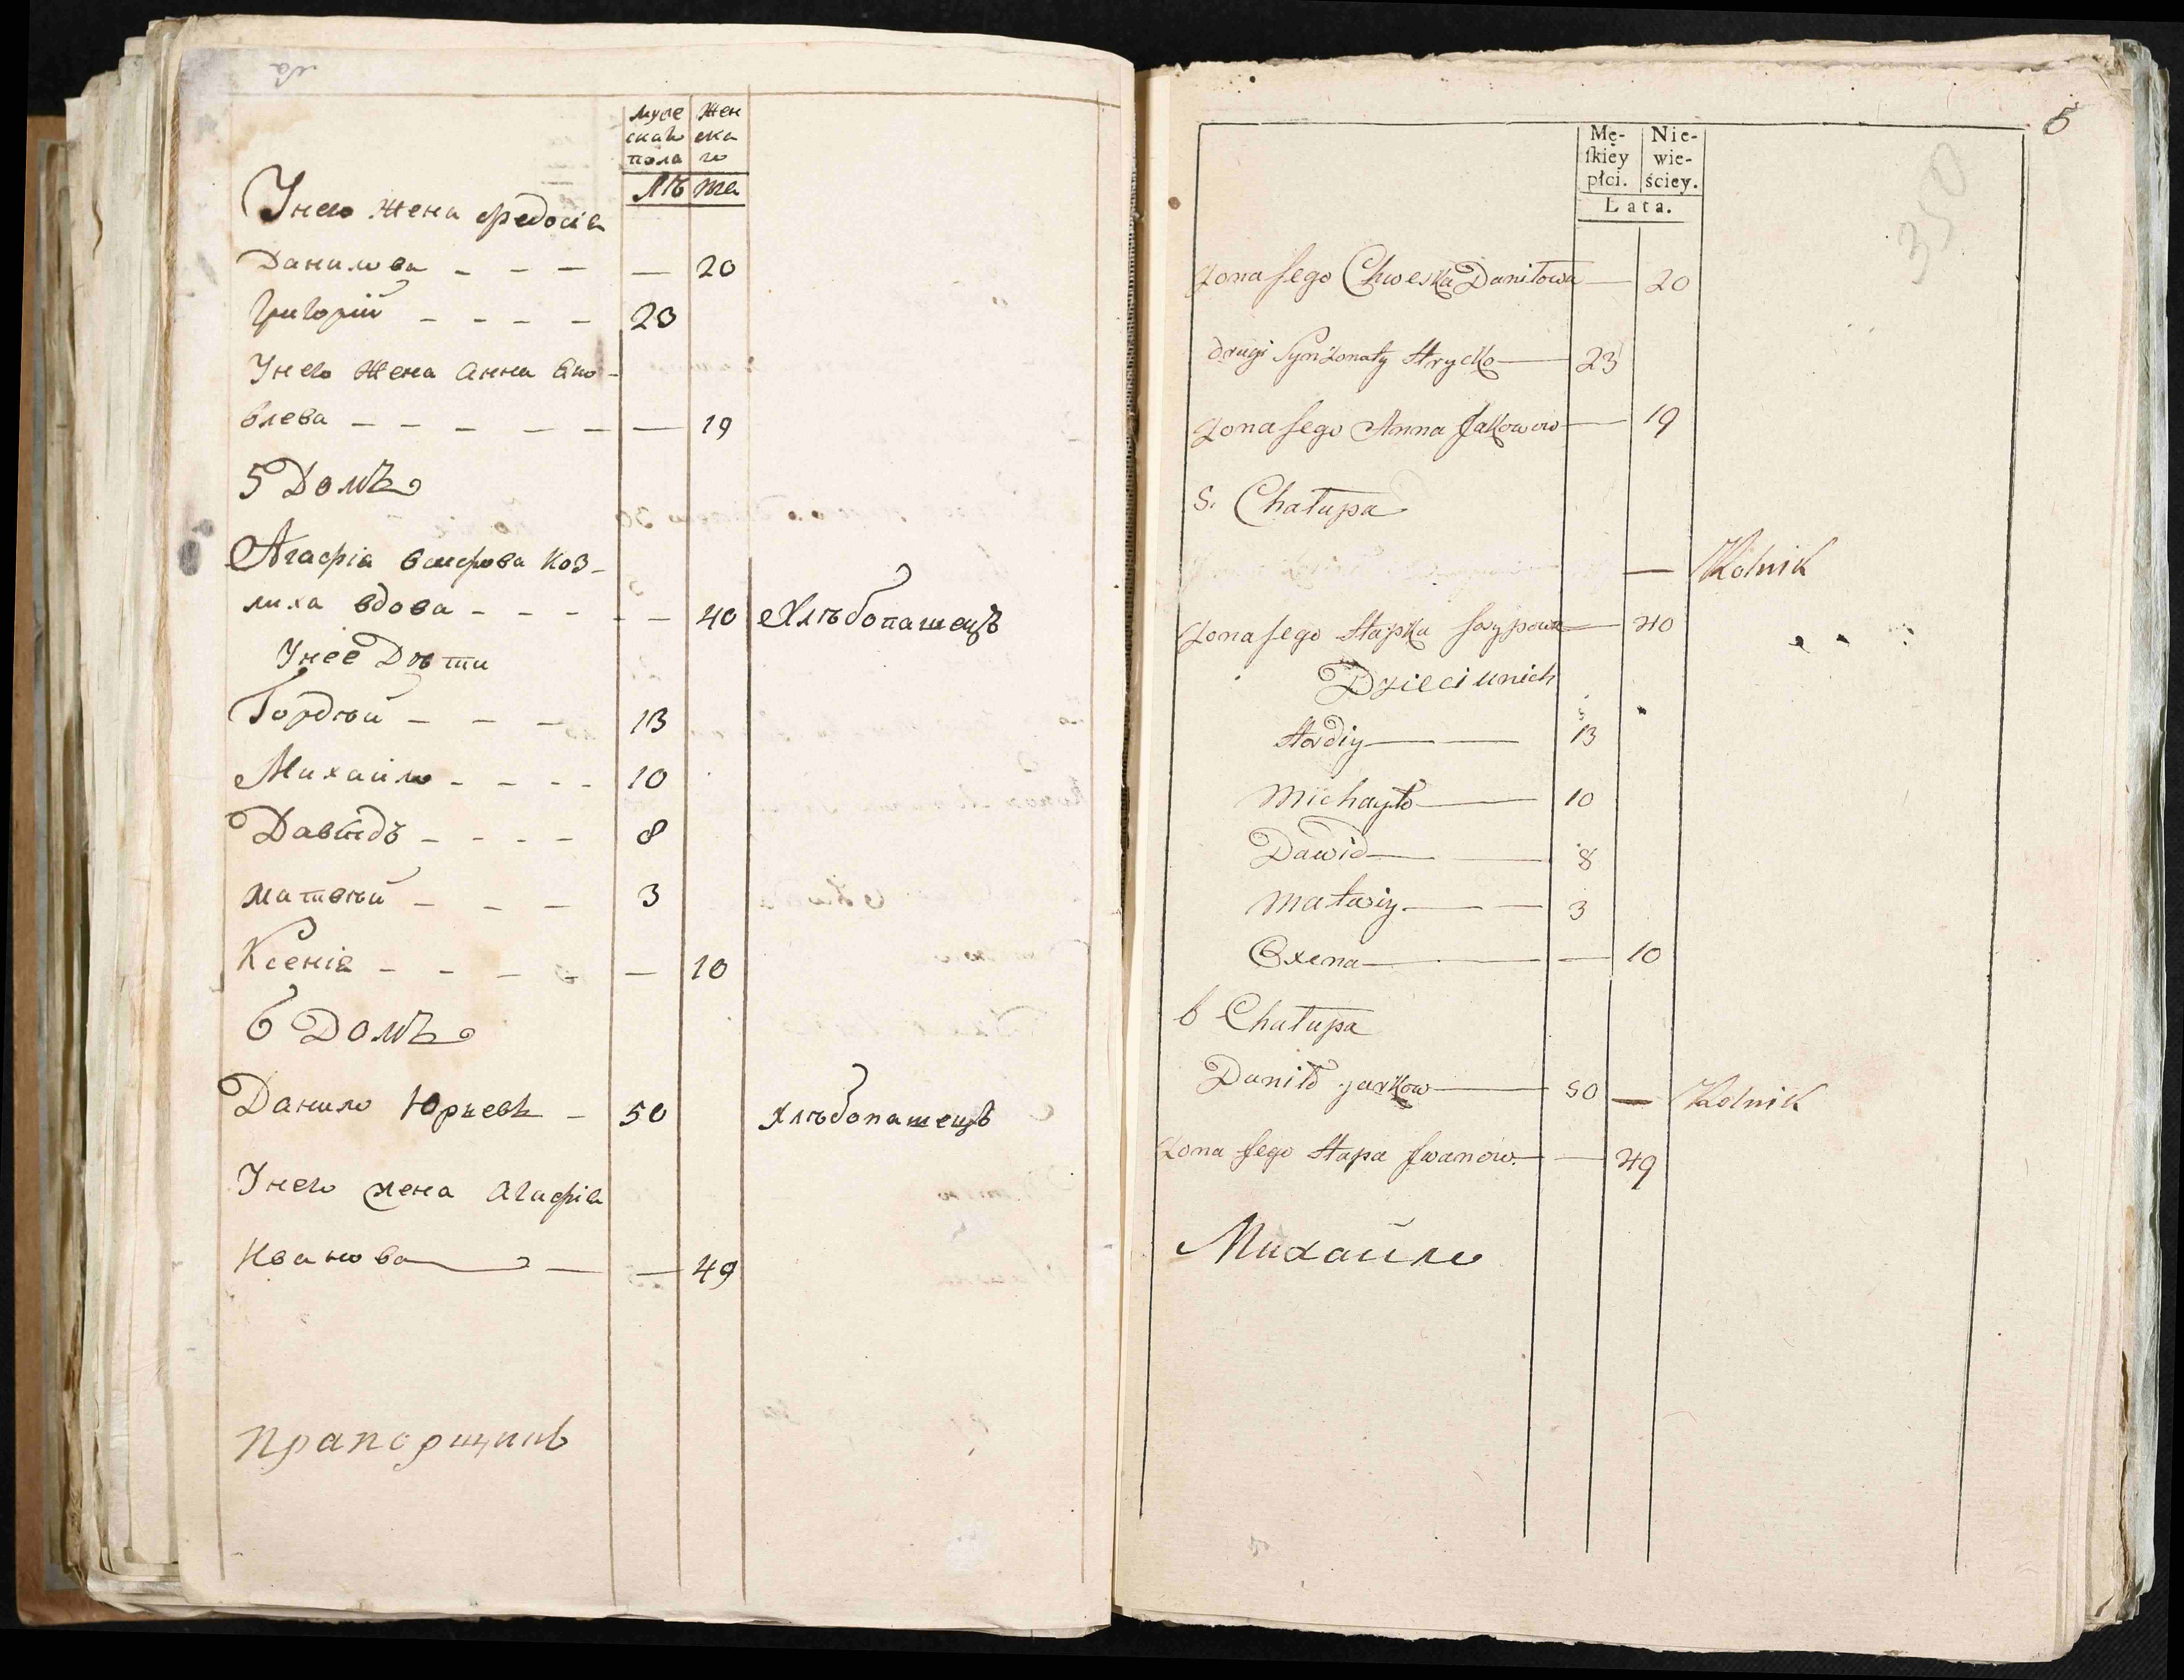 муже жен
скаго ска
пола го
лѣ та
Унего жена Федосія
Данилова - - - — 20
Григорій - - - - 23
Унего жена Анна Яко-
влева - - - - - — 19
5 Домъ
Агафія
лиха вдова - - - - — 40 Хлѣбопашецъ
Унеё Дѣти
Гордѣй - - - 13
Михайло - - - - 10
Давыдъ - - - - 8
матвѣй - - - 3
Ксенія - - - - — 10
6 Домъ
Данило Юрьевъ - 50 Хлѣбопашецъ
Унего жена Агафія
Иванова — — 49
прапорщикъ
5
350
Mę- Nie-
ſkiéy wie-
płci. ściey.
Lata.
Zona Jego Chweska Daniłowa — 20
drugi Syn Zonaty Hrycko — 23
Zona Jego Anna Jakowow — 19
5. Chałupa
— Rolnik
Zona Jego Hapka — 40
Dzieci unich
Hordiy — 13
Michayło — 10
Dawid — 8
Matwiy — 3
Oxena — — 10
6 Chałupa
Daniło Jurkow — 50 — Rolnik
Zona Jego Hapa Iwanow. — — 49
Михайло